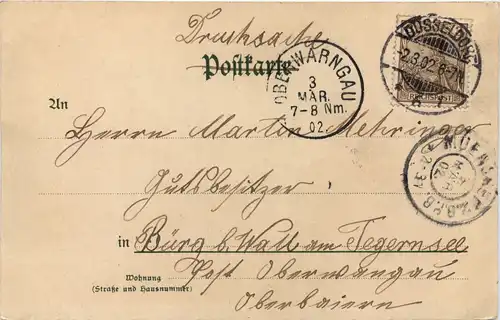 Drucksache
Postkarte
DÜSSELDORF
2.3.02.6-7N.
OBERWARNGAU
3
MAR.
7-8 Nm.
02
An
Herrn Martin Mehringer
Gutsbesitzer
in Bürg b. Wall am Tegernsee
Post Oberwarngau
Oberbaiern
Wohnung
(Straße und Hausnummer)